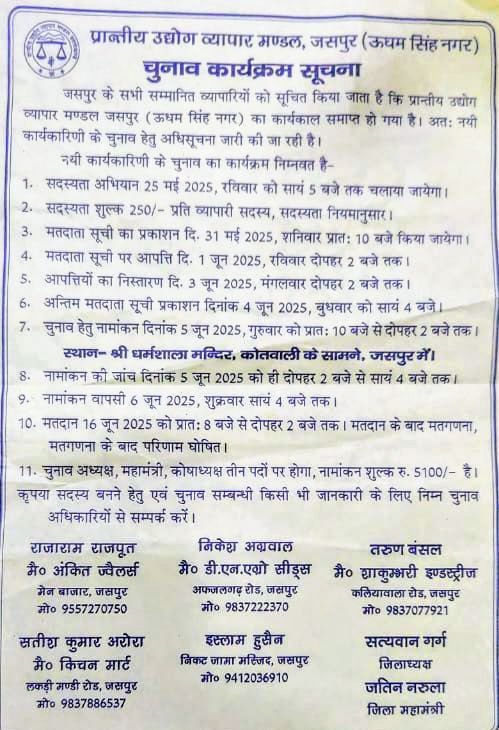 प्रान्तीय उद्योग व्यापार मण्डल, जसपुर (ऊधम सिंह नगर)
चुनाव कार्यक्रम सूचना
जसपुर के सभी सम्मानित व्यापारियों को सूचित किया जाता है कि प्रान्तीय उद्योग
व्यापार मण्डल जसपुर (ऊधम सिंह नगर) का कार्यकाल समाप्त हो गया है। अतः नयी
कार्यकारिणी के चुनाव हेतु अधिसूचना जारी की जा रही है।
नयी कार्यकारिणी के चुनाव का कार्यक्रम निम्नवत है-
1. सदस्यता अभियान 25 मई 2025, रविवार को सायं 5 बजे तक चलाया जायेगा।
2. सदस्यता शुल्क 250/- प्रति व्यापारी सदस्य, सदस्यता नियमानुसार।
3. मतदाता सूची का प्रकाशन दि. 31 मई 2025, शनिवार प्रातः 10 बजे किया जायेगा।
4. मतदाता सूची पर आपत्ति दि. 1 जून 2025, रविवार दोपहर 2 बजे तक।
5. आपत्तियों का निस्तारण दि. 3 जून 2025, मंगलवार दोपहर 2 बजे तक।
6. अन्तिम मतदाता सूची प्रकाशन दिनांक 4 जून 2025, बुधवार को सायं 4 बजे।
7. चुनाव हेतु नामांकन दिनांक 5 जून 2025, गुरुवार को प्रातः 10 बजे से दोपहर 2 बजे तक।
स्थान- श्री धर्मशाला मन्दिर, कोतवाली के सामने, जसपुर में।
8. नामांकन की जांच दिनांक 5 जून 2025 को ही दोपहर 2 बजे से सायं 4 बजे तक।
9. नामांकन वापसी 6 जून 2025, शुक्रवार सायं 4 बजे तक।
10. मतदान 16 जून 2025 को प्रातः 8 बजे से दोपहर 2 बजे तक। मतदान के बाद मतगणना,
मतगणना के बाद परिणाम घोषित।
11. चुनाव अध्यक्ष, महामंत्री, कोषाध्यक्ष तीन पदों पर होगा, नामांकन शुल्क रु. 5100/- है।
कृपया सदस्य बनने हेतु एवं चुनाव सम्बन्धी किसी भी जानकारी के लिए निम्न चुनाव
अधिकारियों से सम्पर्क करें।
राजाराम राजपूत
मै० अंकित ज्वैलर्स
मेन बाजार, जसपुर
मो० 9557270750
निकेश अग्रवाल
मै० डी.एन.एग्रो सीड्स
अफजलगढ़ रोड, जसपुर
मो० 9837222370
तरुण बंसल
मै० शाकुम्भरी इण्डस्ट्रीज
कलियावाला रोड, जसपुर
मो० 9837077921
सतीश कुमार अरोरा
मै० किचन मार्ट
लकड़ी मण्डी रोड, जसपुर
मो० 9837886537
इस्लाम हुसैन
निकट जामा मस्जिद, जसपुर
मो० 9412036910
सत्यवान गर्ग
जिलाध्यक्ष
जतिन नरुला
जिला महामंत्री